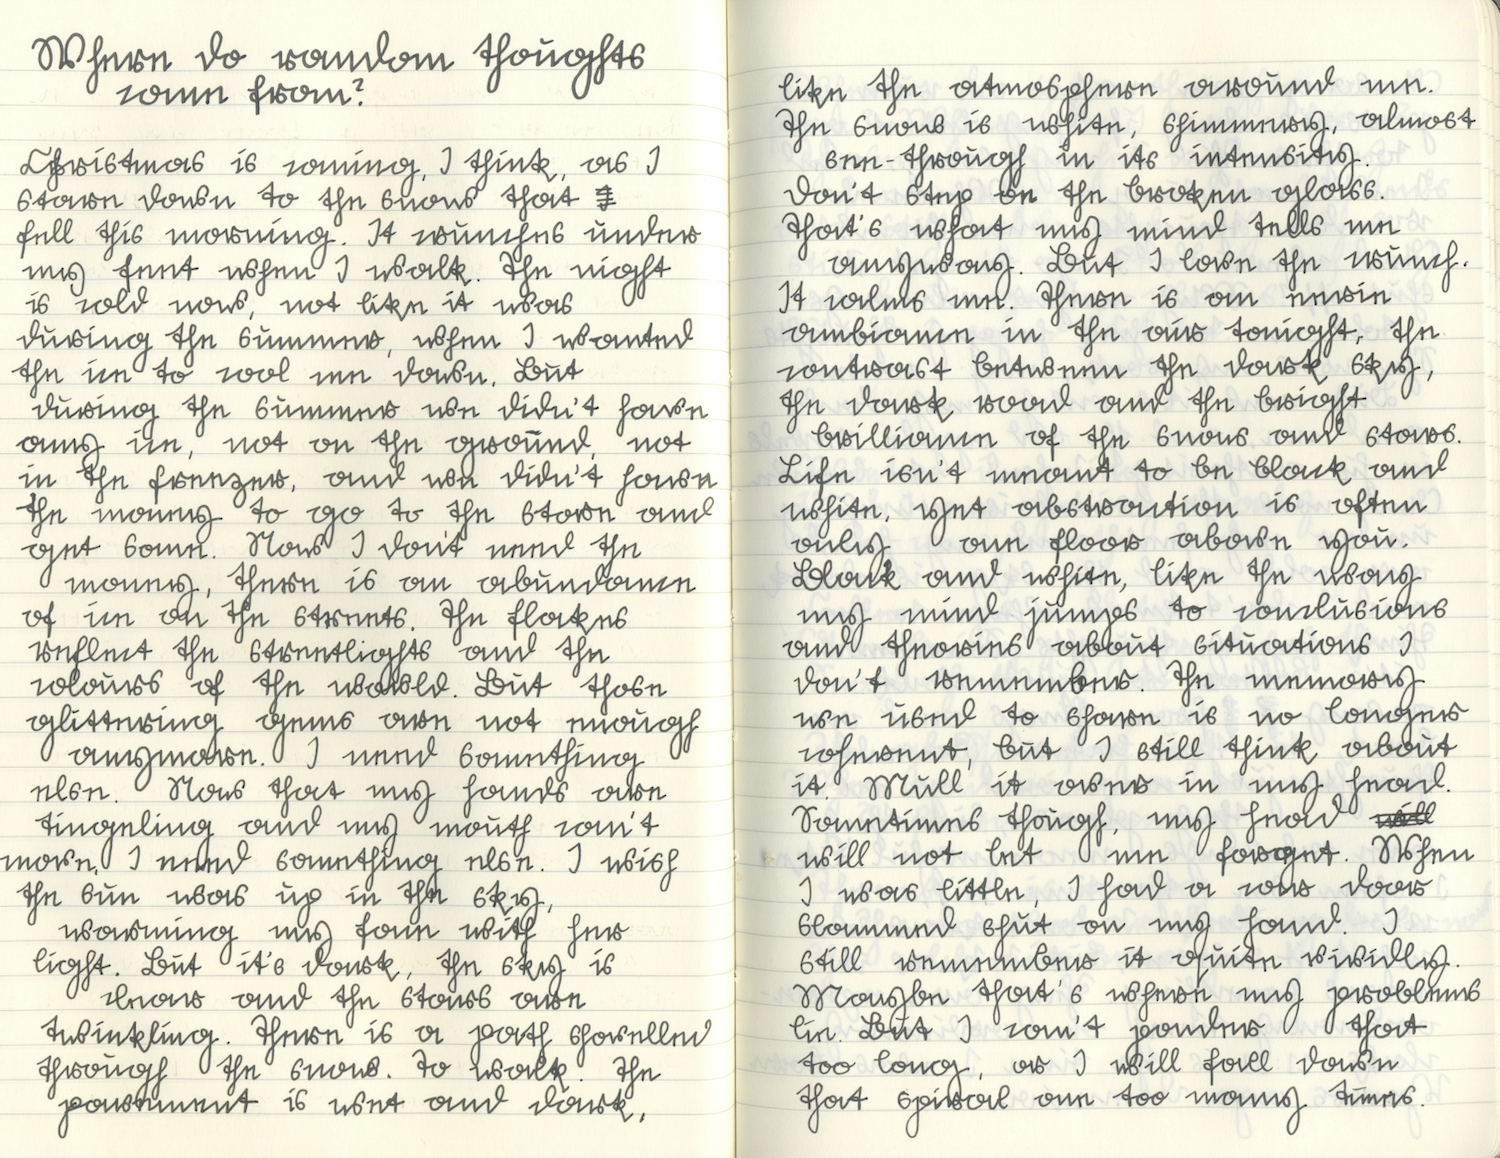 Where do random thoughts
come from?
Christmas is coming, I think, as I
stare down to the snow that
fell this morning. It crunches under
my feet when I walk. The night
is cold now, not like it was
during the summer, when I wanted
the ice to cool me down. But
during the summer we didn't have
any ice, not on the ground, not
in the freezer, and we didn't have
the money to go to the store and
get some. Now I don't need the
money, there is an abundance
of ice on the streets. The flakes
reflect the streetlights and the
colours of the world. But those
glittering gems are not enough
anymore. I need something
else. Now that my hands are
tingeling and my mouth can't
move, I need something else. I wish
the sun was up in the sky,
warming my face with her
light. But it's dark, the sky is
clear and the stars are
twinkling. There is a path shovelled
through the snow. To walk. The
pavement is wet and dark,
like the atmosphere around me.
The snow is white, shimmery, almost
see-through in its intensity.
Don't step on the broken glass.
That's what my mind tells me
anyway. But I love the crunch.
It calms me. There is an eerie
ambiance in the air tonight, the
contrast between the dark sky,
the dark road and the bright
brilliance of the snow and stars.
Life isn't meant to be black and
white, yet abstraction is often
only one floor above you.
Black and white, like the way
my mind jumps to conclusions
and theories about situations I
don't remember. The memory
we used to share is no longer
coherent, but I still think about
it. Mull it over in my head.
Sometimes though, my head
will not let me forget. When
I was little, I had a car door
slammed shut on my hand. I
still remember it quite vividly.
Maybe that's where my problems
lie. But I can't ponder that
too long, or I will fall down
that spiral one too many times.